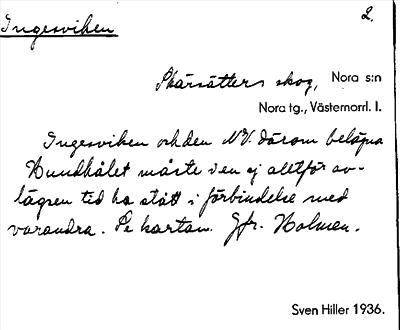 Ingesviken
2.
Skärsätters skog, Nora s:n
Nora tg., Västernorrl. l.
Ingesviken och den NV. därom belägna
Hundhålet måste i en ej alltför av-
lägsen tid ha stått i förbindelse med
varandra. Se kartan. Jfr. Holmen.
Sven Hiller 1936.